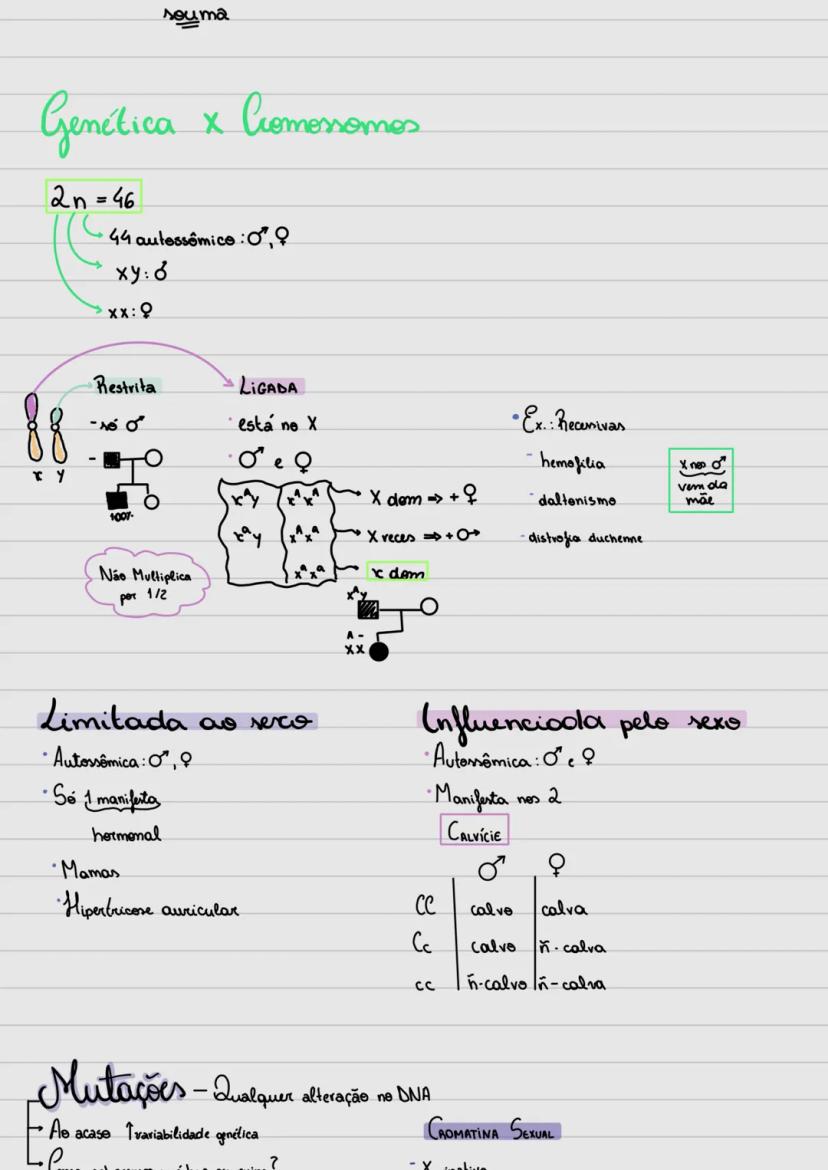 souma
Genética x Cromossomos
2n = 46
44 autossômico: ♂, ♀
xy: ♂
xx: ♀
Restrita
- só ♂
-
100%
x y
Não Multiplica
por 1/2
LIGADA
• está no X
• ♂ e ♀
xᴬy xᴬxᴬ X dom ⇒ + ♀
xᵃy xᴬxᵃ X reces ⇒ + ♂
xᵃxᵃ x dom
xᴬy
A -
XX
• Ex.: Recessivas
- hemofilia
- daltonismo
- distrofia duchenne
X nos ♂
vem da
mãe
Limitada ao sexo
• Autossômica: ♂, ♀
• Só 1 manifesta
hormonal
• Mamas
• Hipertricose auricular
Influenciada pelo sexo
• Autossômica: ♂ e ♀
• Manifesta nos 2
CALVÍCIE
♂ ♀
CC calvo calva
Cc calvo ñ-calva
cc ñ-calvo ñ-calva
Mutações – Qualquer alteração no DNA
Ao acaso ↑variabilidade genética
CROMATINA SEXUAL